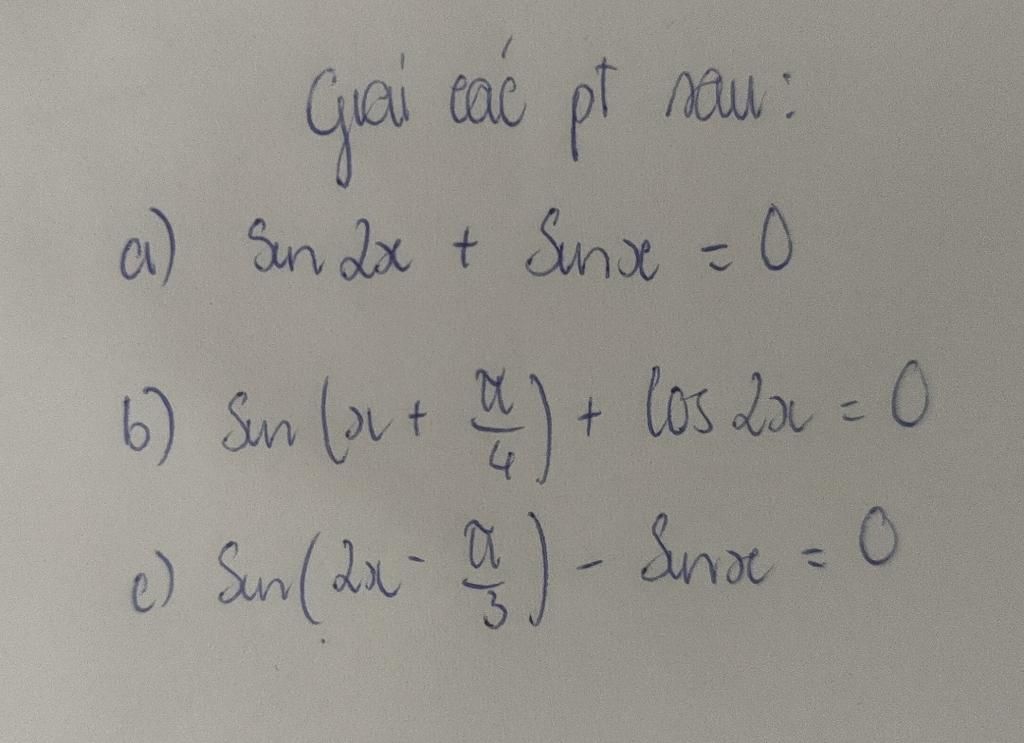 Giải các pt sau:
a) Sin 2x + Sin x = 0
b) Sin (x + π/4) + Cos 2x = 0
c) Sin (2x - π/3) - Sin x = 0